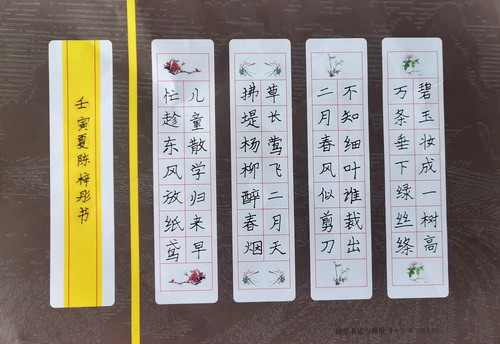 碧玉妆成一树高
万条垂下绿丝绦
不知细叶谁裁出
二月春风似剪刀
草长莺飞二月天
拂堤杨柳醉春烟
儿童散学归来早
忙趁东风放纸鸢
壬寅夏陈梓彤书